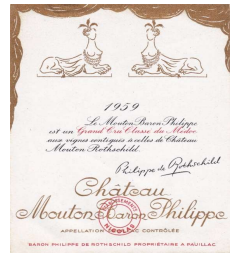 1959
Le Mouton Baron Philippe
est un Grand Cru Classé du Médoc
aux vignes contiguës à celles de Château
Mouton Rothschild.
Philippe de Rothschild
Château
Mouton Baron Philippe
NICOLAS
APPELLATION CONTRÔLÉE
BARON PHILIPPE DE ROTHSCHILD PROPRIÉTAIRE A PAUILLAC